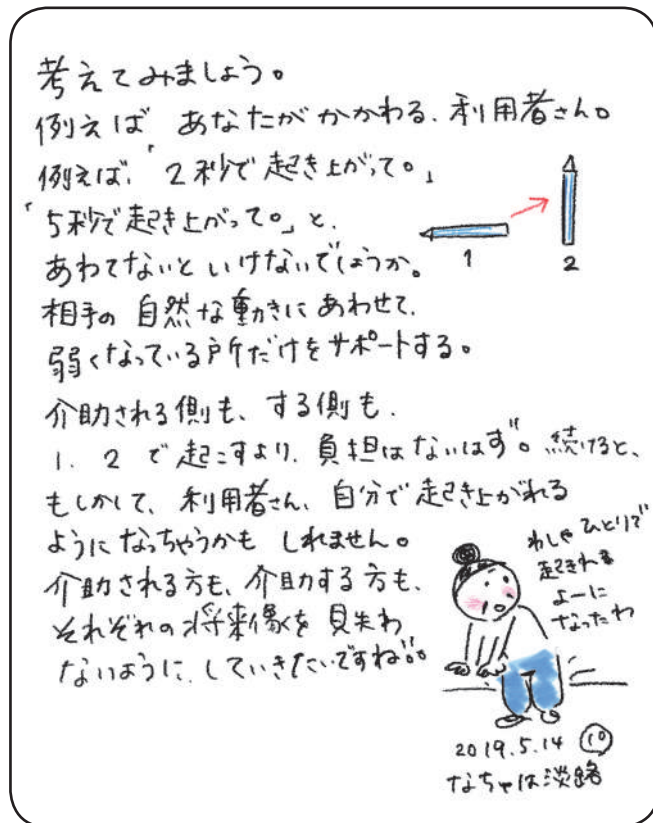 考えてみましょう。
例えば あなたがかかわる、利用者さん。
例えば、「2秒で起き上がって。」
「5秒で起き上がって。」と、
あわてないといけないでしょうか。
1
2
相手の自然な動きにあわせて、
弱くなっている所だけをサポートする。
介助される側も、する側も、
1. 2 で起こすより、負担はないはず。続けると、
もしかして、利用者さん、自分で起き上がれる
ようになっちゃうかも しれません。
介助される方も、介助する方も、
それぞれの将来像を見失わ
ないように、していきたいですね。
わしゃ ひとりで
起きれる
よーに
なったわ
2019.5.14 ⑩
なちゃは淡路